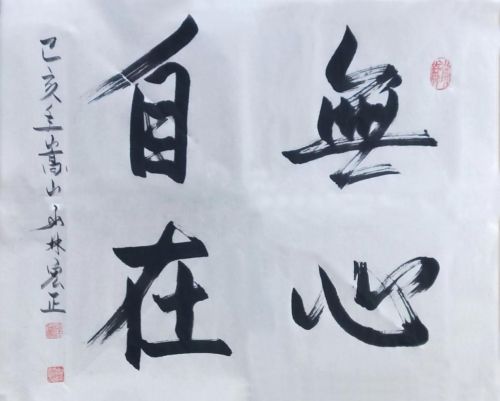 無心
自在
己亥年嵩山少林宏正